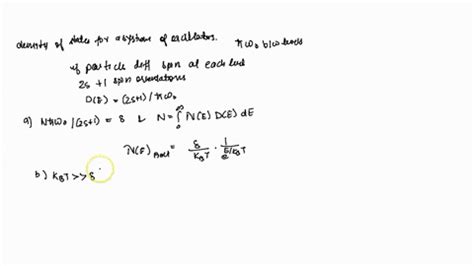 density of states for a system of oscillators. ħω₀ b/w levels
if particle diff spin at each level
2s + 1 spin orientations
D(E) = (2s+1) / ħω₀
a) Nħω₀ / (2s+1) = δ & N = ∫₀^∞ N(E) D(E) dE
N(E) Bolt = δ / K_BT · 1 / e^{E/K_BT}
b) K_BT >> δ